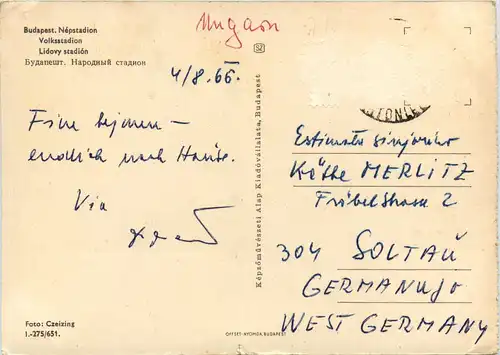 Budapest. Népstadion
Volksstadion
Lidovy stadión
Будапешт. Народный стадион
Ungarn
4/8.66.
Fine hejmen —
endlich nach Hause.
Via
Képzőművészeti Alap Kiadóvállalata, Budapest
Estimata sinjorino
Käthe MERLITZ
Fröbelstrasse 2
304 SOLTAU
GERMANUJO
WEST GERMANY
Foto: Czeizing
I.-275/651.
OFFSET-NYOMDA BUDAPEST